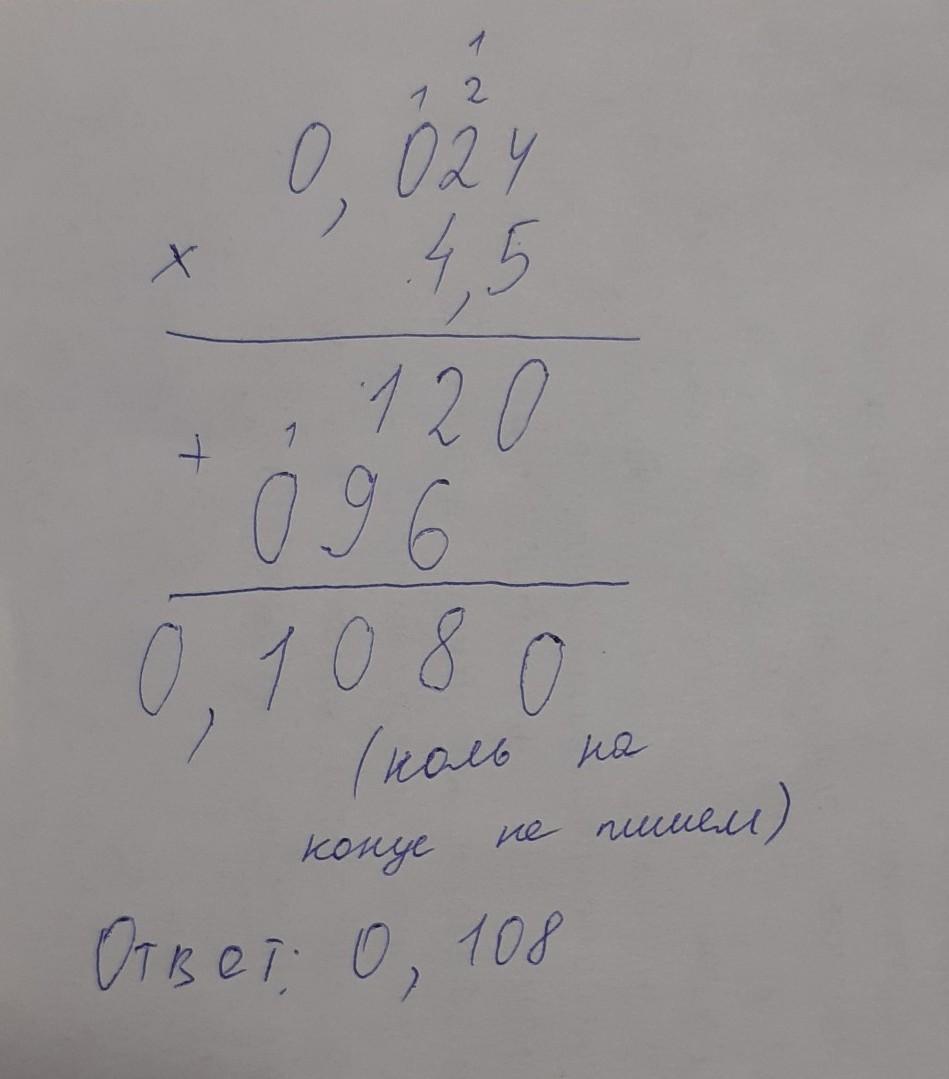 1
1 2
0,024
x 4,5
120
+ 1
096
0,1080
(ноль на
конце не пишем)
Ответ: 0,108